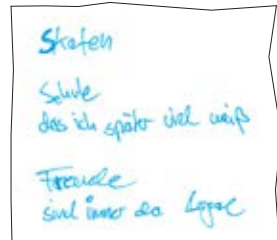 Skaten
Schule
das ich später viel weiß
Freunde
sind immer da Legal